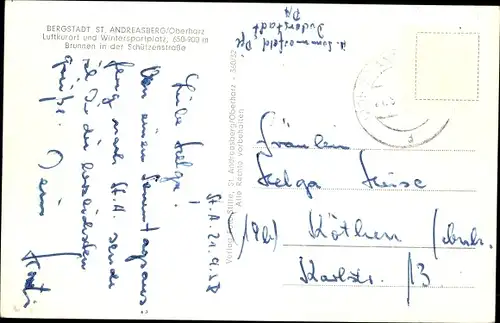 BERGSTADT ST. ANDREASBERG/Oberharz
Luftkurort und Wintersportplatz, 650-900 m
Brunnen in der Schützenstraße
St. A. 21.9.58
Liebe Helga!
Von einem Sonntagsaus-
flug nach St. A. sende
ich Dir die herzlichsten
Grüße.
Dein
St. Andreasberg/Oberharz
Alle Rechte vorbehalten
Duderstadt
Fräulein
Helga
(19b) Köthen /Anh.
Karlstr. 13